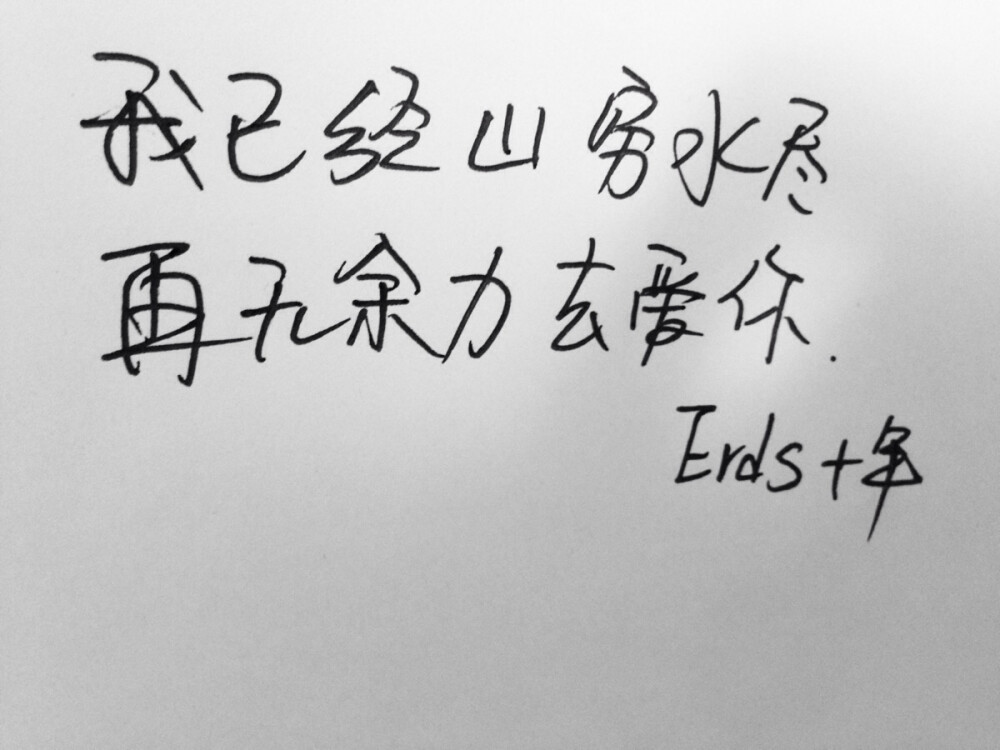 我已经山穷水尽
再无余力去爱你.
Erds十年